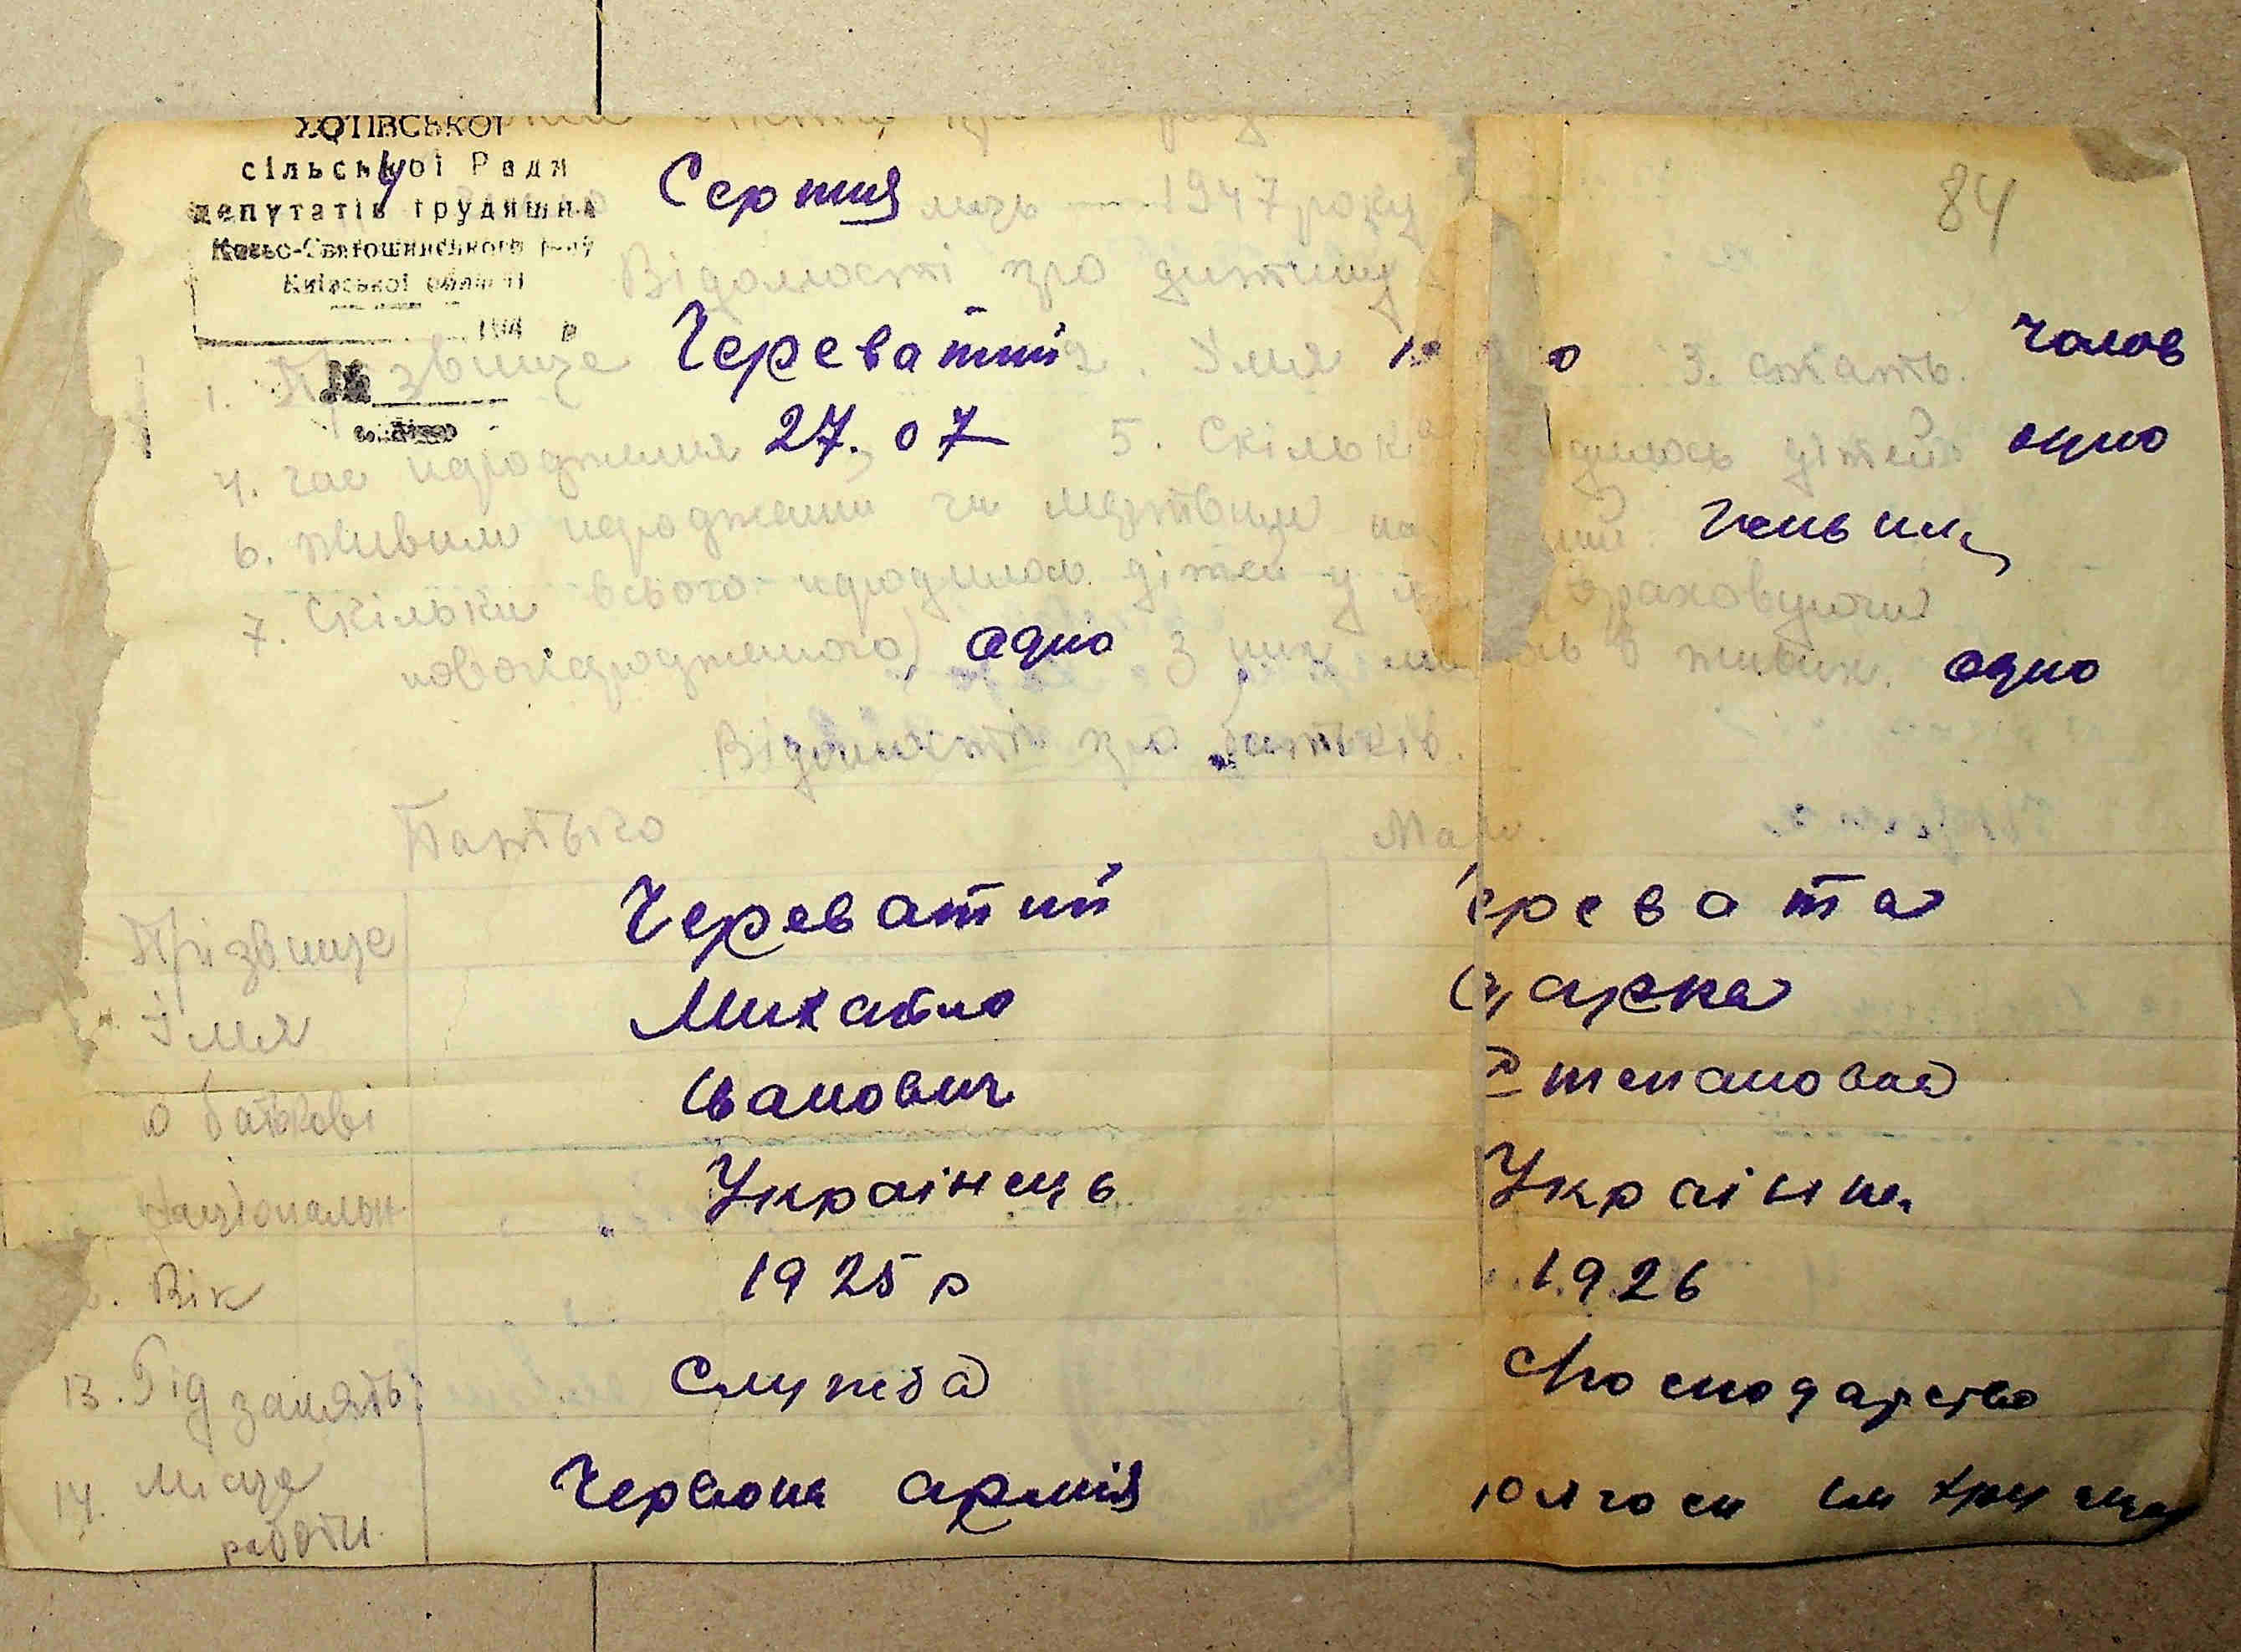 ХОТІВСЬКОЇ
сільської Ради
депутатів трудящих
Києво-Святошинського р-ну
Київської області
194 р
4 Серпня м-ць 1947 року
84
Відомості про дитину
1. Прізвище Череватий 2. Імя 3. стать. чолов
4. час народження 27.07 5. Скільки дилось дітей одно
6. живим народжений чи мертвим
7. Скільки всього народилось дітей у враховуючи
новонародженого) одно З них в живих. одно
Відомості про батьків.
Батьго Мати.
Прізвище Череватий Черевата
Імя Михайло Одарка
о батькові Іванович Степановна
Національн. Українець Українка
Вік 1925 р 1926
13. Рід занять Служба Господарство
14. Місце Червона армія
работи.